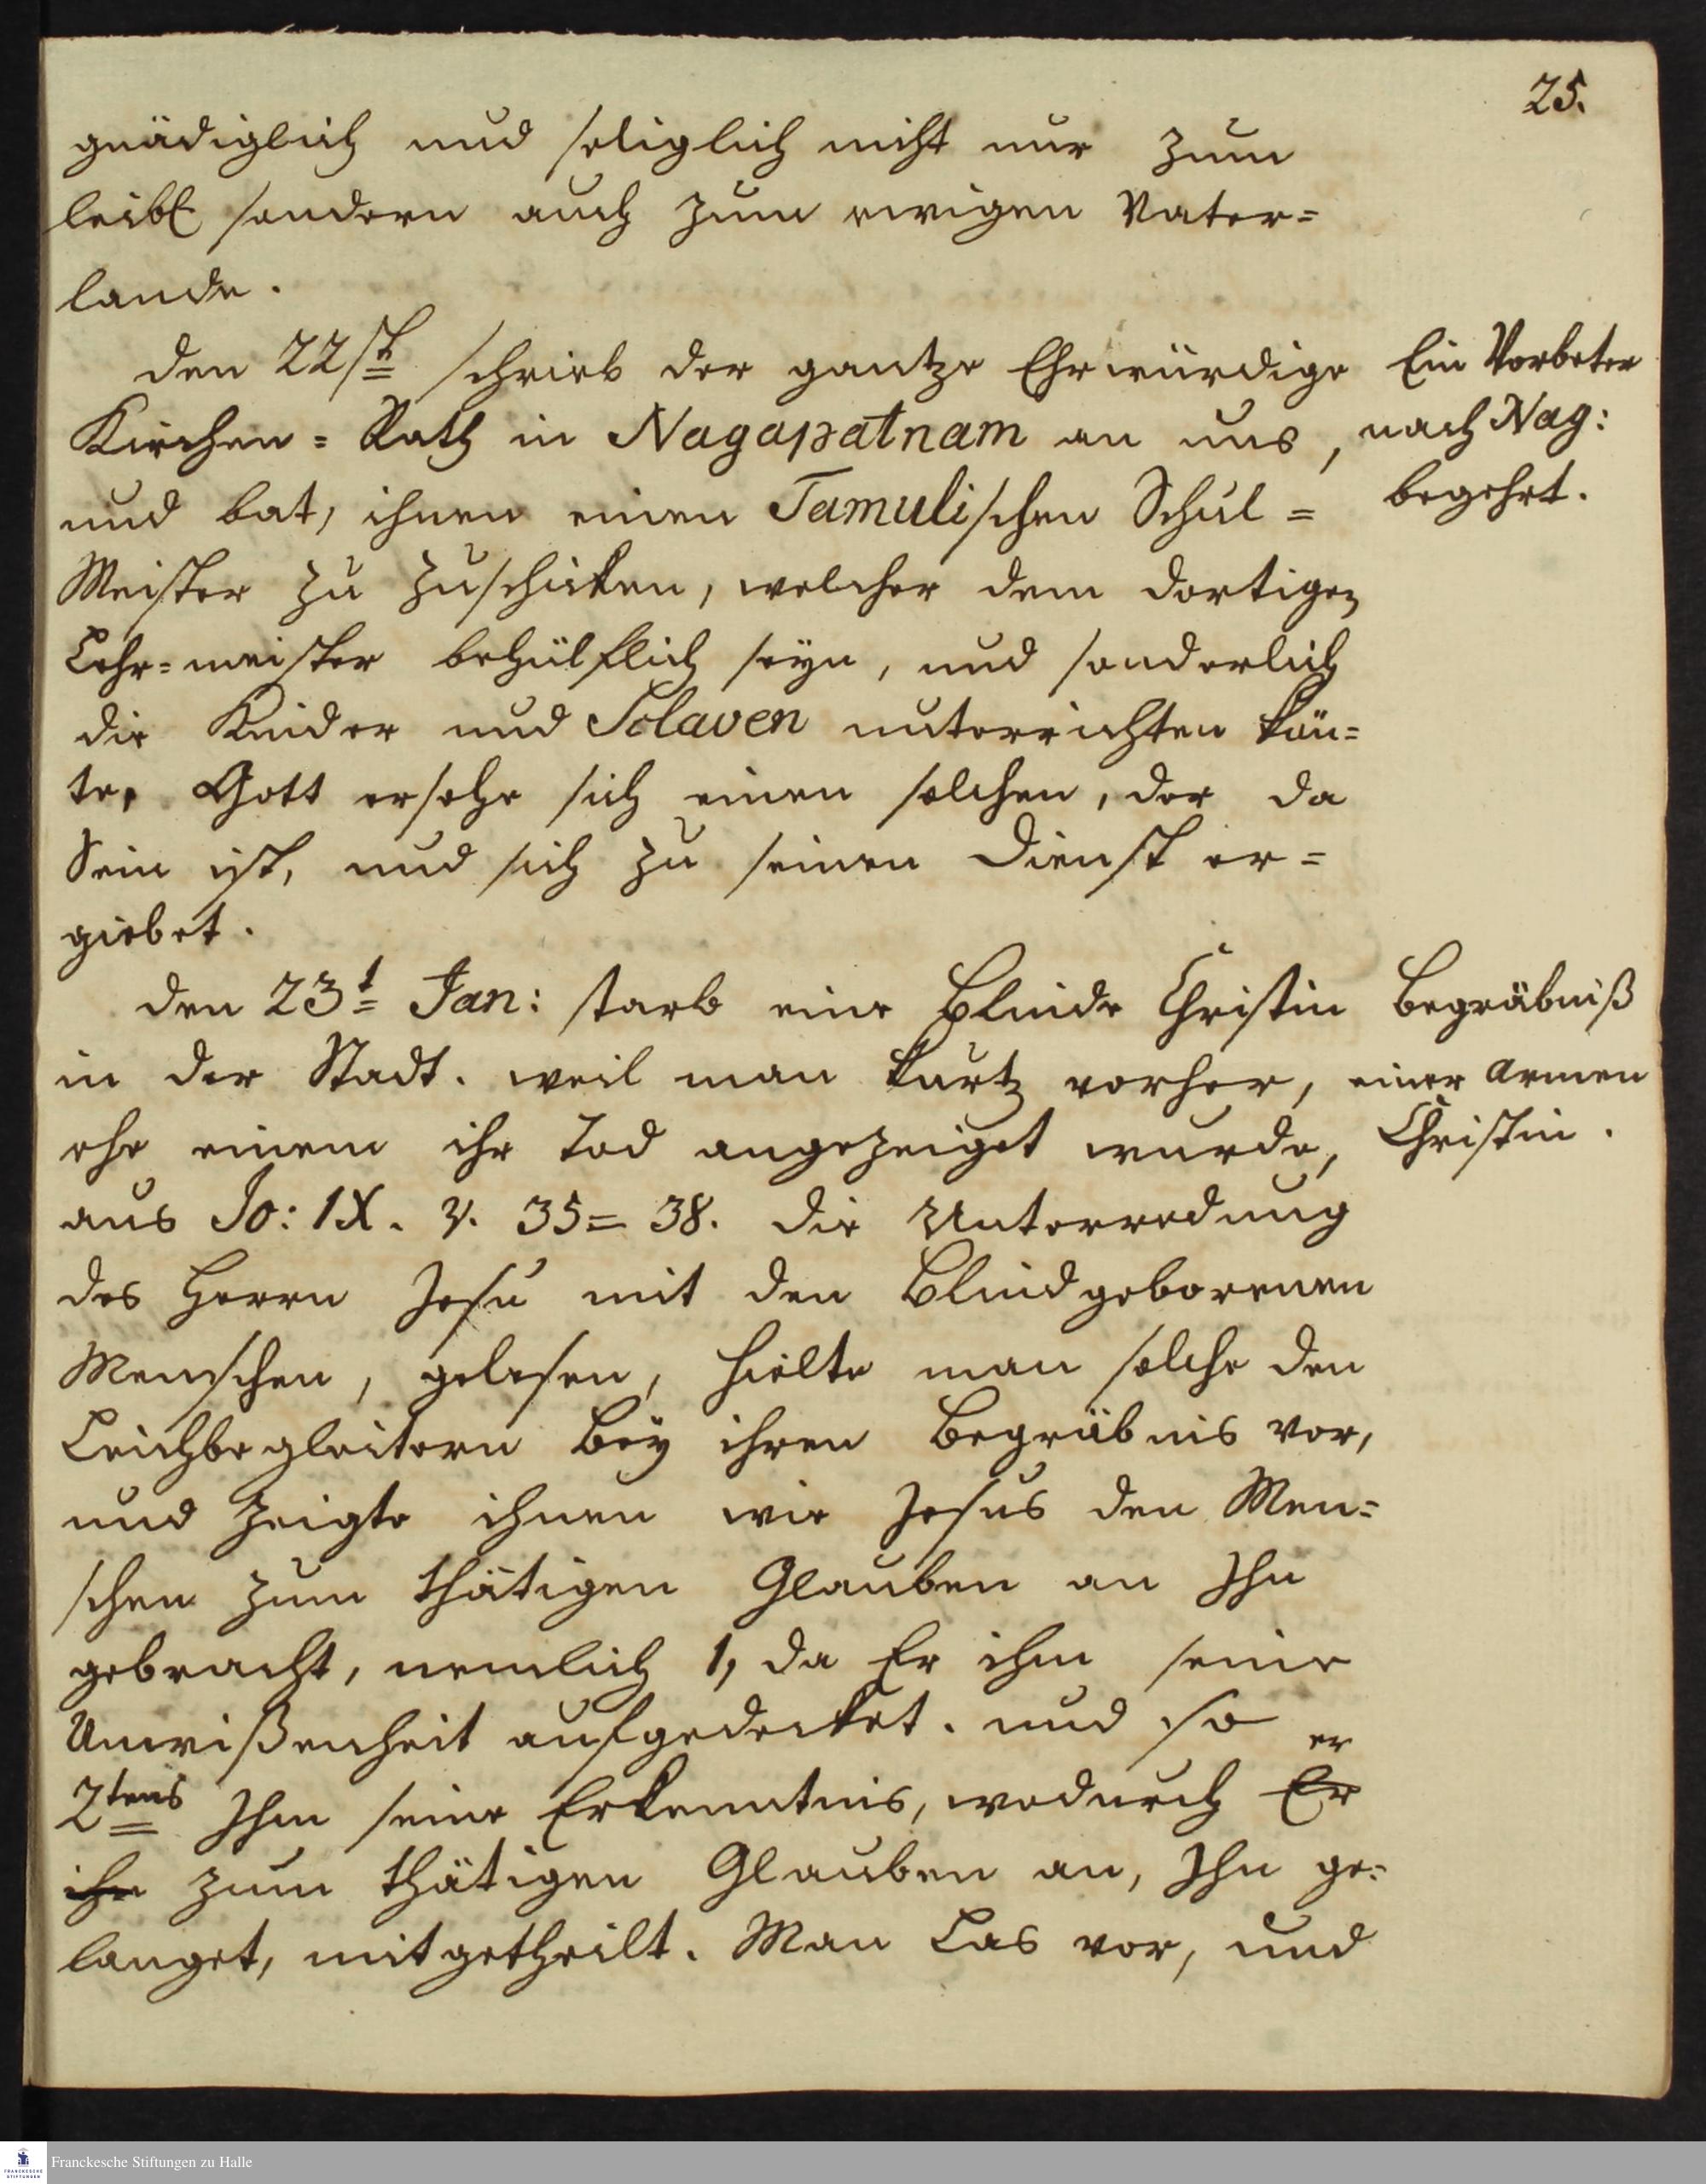 25.
gnädiglich und seliglich nicht nur zum
leibl sondern auch zum ewigen Vater=
lande.
den 22st schrieb der gantze Ehrwürdige
Kirchen=Rath in Nagapatnam an uns,
und bat, ihnen einen Tamulischen Schul=
Meister zu zuschicken, welcher dem dortigen
Lehr=meister behülflich seyn, und sonderlich
die Kinder und Sclaven unterrichten kön=
te, Gott ersehe sich einen solchen, der da
Sein ist, und sich zu seinen Dienst er=
giebet.
Ein Vorbeter
nach Nag:
begehrt.
den 23t Jan: starb eine Blinde Christin
in der Stadt. weil man kurtz vorher,
ehe einem ihr Tod angezeiget wurde,
aus Jo: IX. v. 35=38. die Unterredung
des Herrn Jesu mit den Blindgeborenen
Menschen, gelesen, hielte man solche den
Leichbegleitern bey ihren Begräbnis vor,
und zeigte ihnen wie Jesus den Men=
schen zum thätigen Glauben an Ihn
gebracht, nemlich 1, da Er ihm seine
Unwißenheit aufgedecket. und so
2tens Ihm seine Erkenntnis, wodurch Er er
ihn zum thätigen Glauben an, Ihn ge=
langet, mitgetheilt. Man Las vor, und
Begräbniß
einer armen
Christin.
Franckesche Stiftungen zu Halle
FRANCKESCHE
STIFTUNGEN